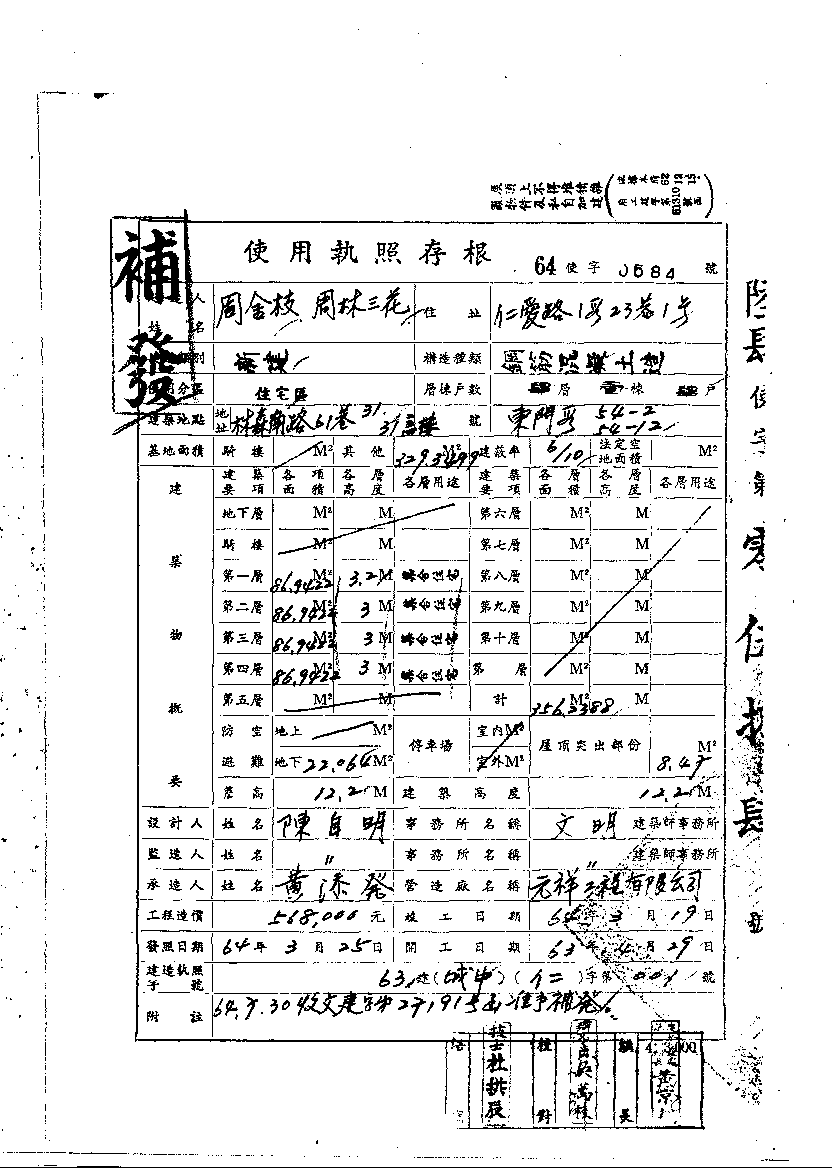 屋頂上不得堆積雜
亂物件及私自加建
使用執照存根
64 使字 0584 號
補發
人 周金枝 周林三花 住址 仁愛路1段23巷1号
姓名
別 新建 構造種類 鋼筋混凝土造
分區 住宅區 層棟戶數 層 棟 戶
建築地點 地址 林森南路61巷31 號 東門段 54-2
54-12
基地面積 騎樓 M² 其他 M² 建蔽率 6/10 法定空地面積 M²
建築物概要
建築要項 各項面積 各層高度 各層用途 建築要項 各層面積 各層高度 各層用途
地下層 M² M 第六層 M² M
騎樓 M² M 第七層 M² M
第一層 86.9422 M² 3.2 M 集合住宅 第八層 M² M
第二層 86.9422 M² 3 M 集合住宅 第九層 M² M
第三層 86.9422 M² 3 M 集合住宅 第十層 M² M
第四層 86.9422 M² 3 M 集合住宅 第 層 M² M
第五層 M² M 計 356.2388 M² M
防空 地上 M² 停車場 室內 M² 屋頂突出部份 M²
避難 地下 22.064 M² 室外 M² 8.45
簷高 12.2 M 建築高度 12.2 M
設計人 姓名 陳自明 事務所名稱 文明 建築師事務所
監造人 姓名 〃 事務所名稱 〃 建築師事務所
承造人 姓名 黃添發 營造廠名稱 元祥工程有限公司
工程造價 568,000 元 竣工日期 64 年 3 月 19 日
發照日期 64 年 3 月 25 日 開工日期 63 年 4 月 29 日
建造執照字號 63 建(城中)(仁)字第 001 號
附註 64.5.30收文建字第27191号函准予補發
技士杜
校對
股長